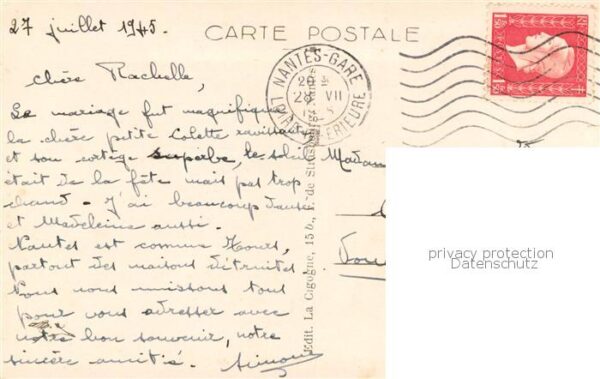 27 juillet 1945.
CARTE POSTALE
Chère Rachelle,
Le mariage fut magnifique
la chère petite Colette ravissante
et son cortège superbe, le soleil
était de la fête mais pas trop
chaud. J'ai beaucoup dansé
et Madeleine aussi.
Nantes est comme Tours,
partout des maisons détruites
Nous nous unissons tous
pour vous adresser avec
notre bon souvenir, notre
sincère amitié. Simone
NANTES-GARE
28 VII
LOIRE INFERIEURE
Edit. La Cigogne, 15 b., R. de Strasbourg, Nantes
Madame
privacy protection
Datenschutz